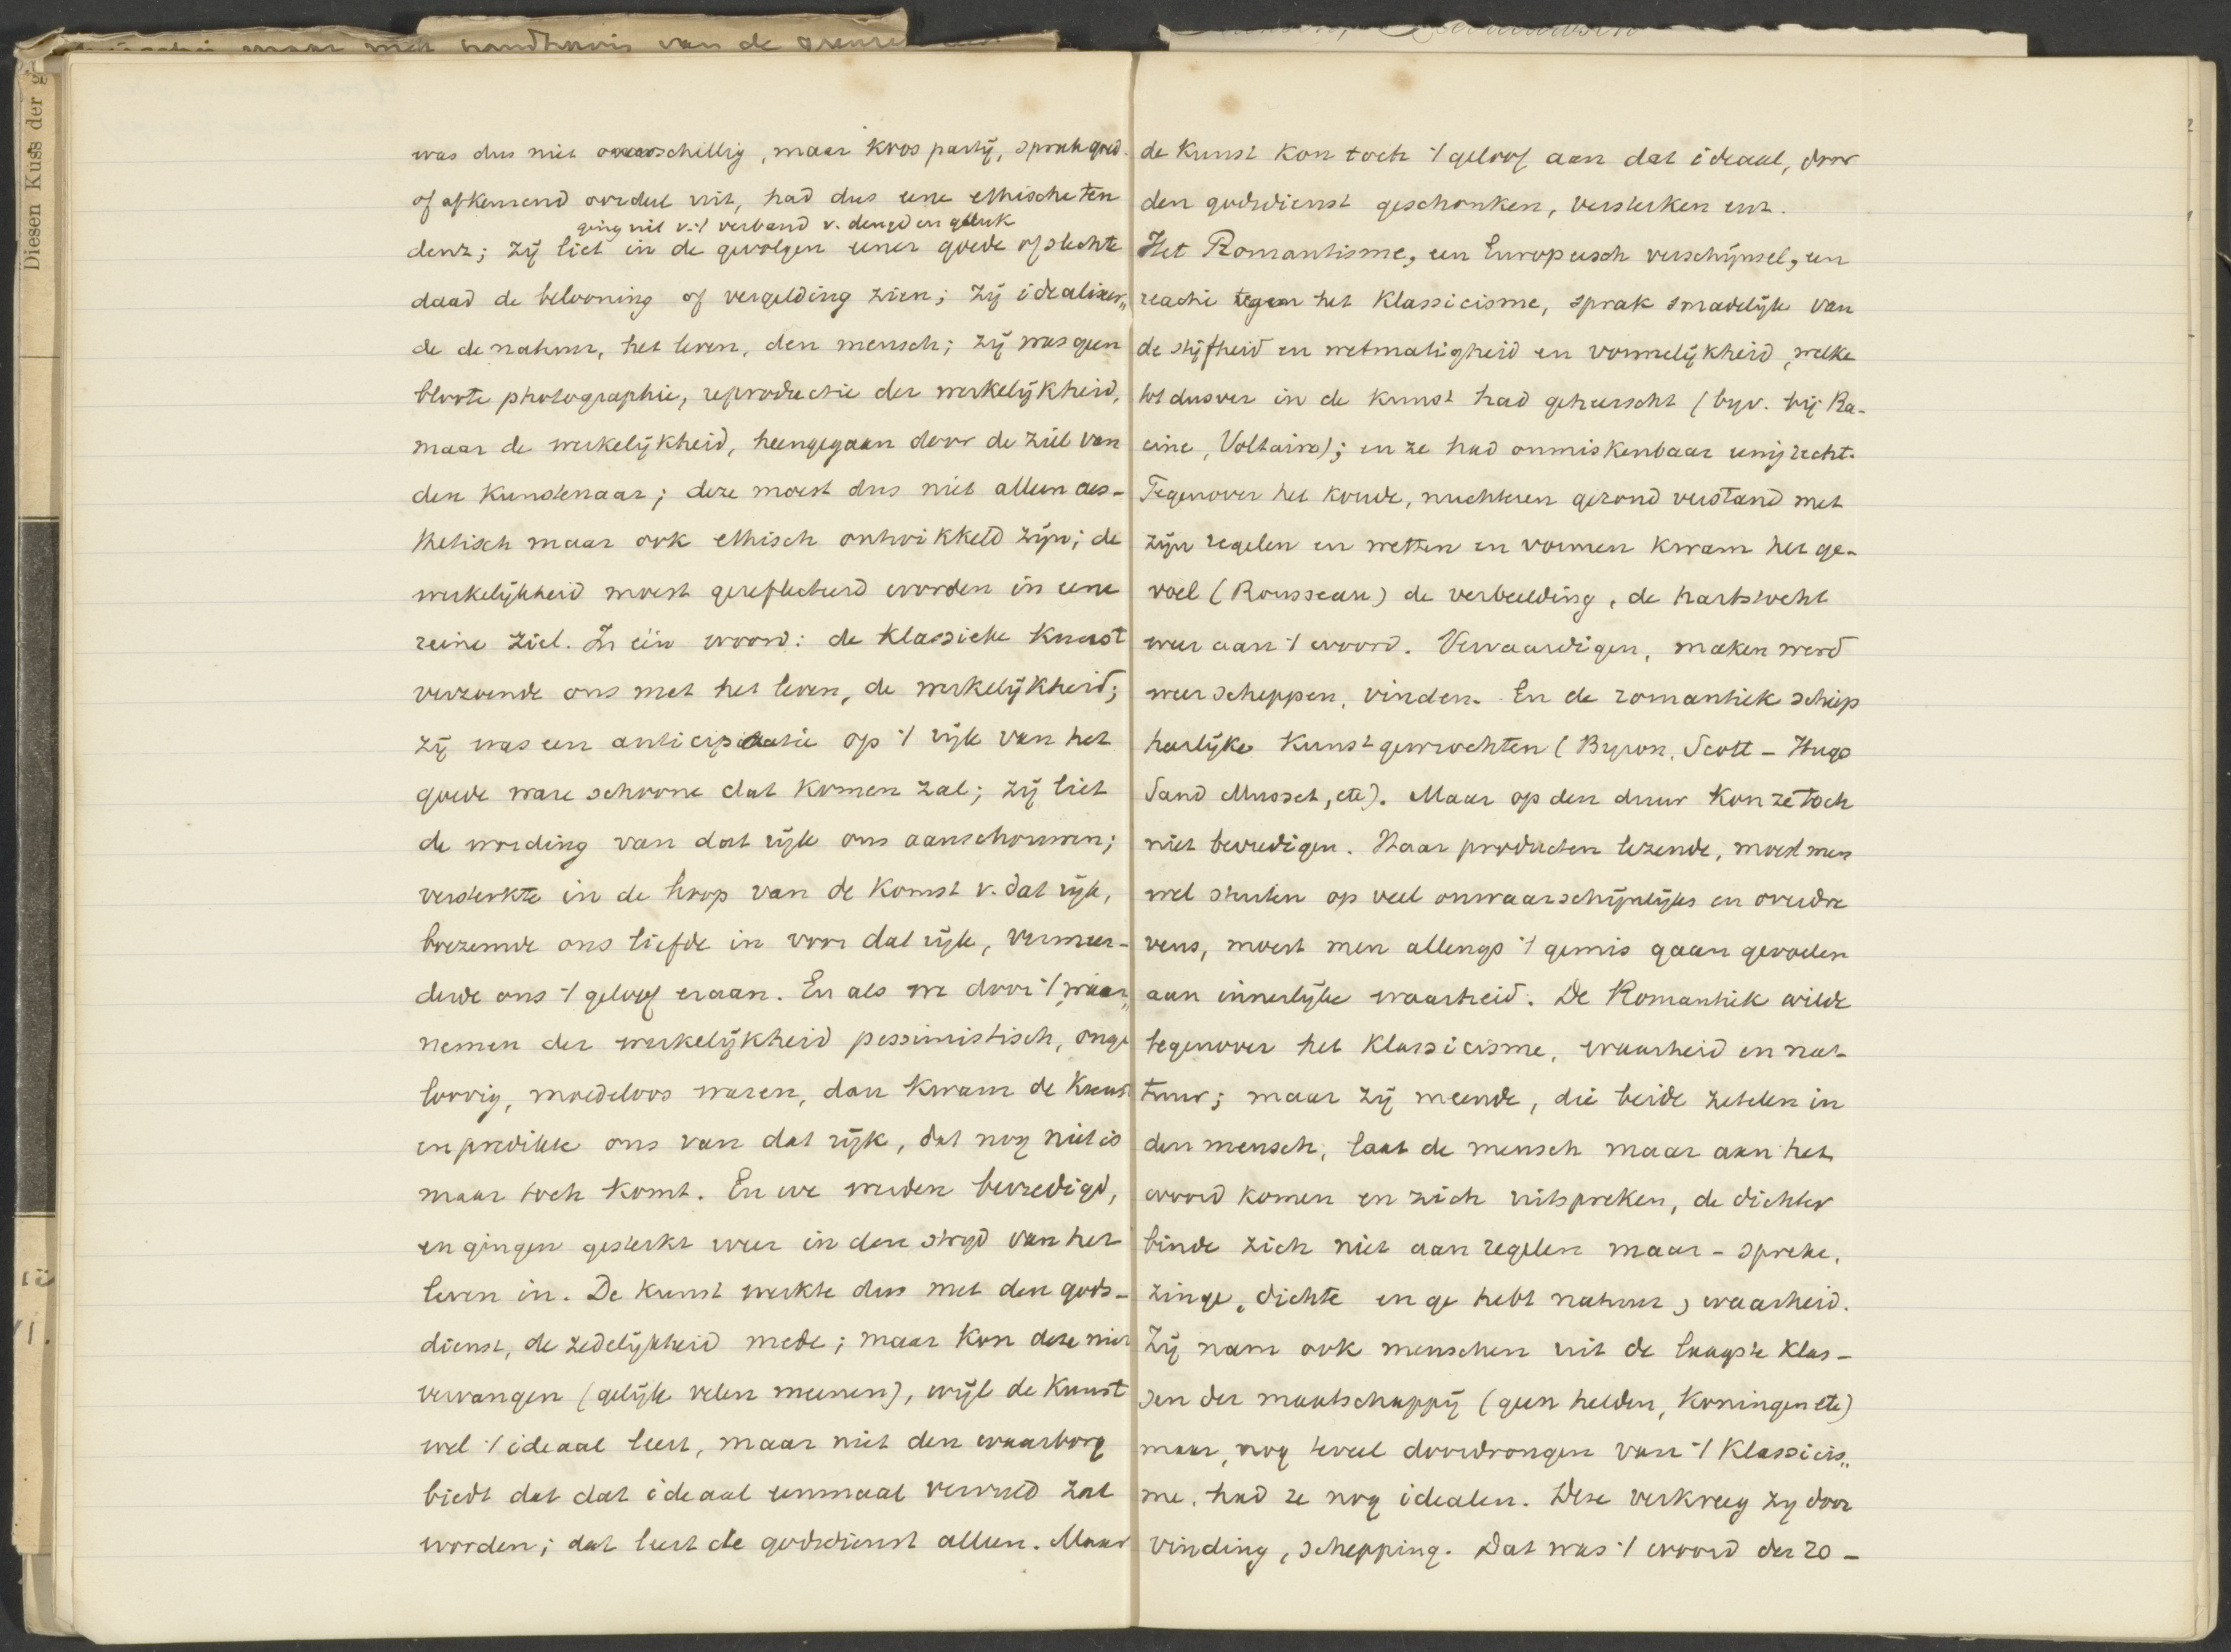 Diesen Kuss der g
maar met van de
was dus niet onverschillig, maar koos partij, sprak goed-
of afkeurend oordeel uit, had dus eene ethische ten
ging uit v. 't verband v. deugd en geluk
denz; zij liet in de gevolgen eener goede of slechte
daad de belooning of vergelding zien; zij idealiseer„
de de natuur, het leven, den mensch; zij was geen
bloote photographie, reproductie der werkelijkheid,
maar de werkelijkheid, heengegaan door de ziel van
den kunstenaar; deze moest dus niet alleen aes-
thetisch maar ook ethisch ontwikkeld zijn; de
werkelijkheid moest gereflecteerd worden in eene
reine ziel. In één woord: de klassieke kunst
verzoende ons met het leven, de werkelijkheid;
zij was een anticipatie op 't rijk van het
goede ware schoone dat komen zal; zij liet
de wording van dat rijk ons aanschouwen;
versterkte in de hoop van de komst v. dat rijk,
boezemde ons liefde in voor dat rijk, vermeer-
derde ons 't geloof eraan. En als we door 't waar„
nemen der werkelijkheid pessimistisch, onge
loovig, moedeloos waren, dan kwam de kunst
en predikte ons van dat rijk, dat nog niet is
maar toch komt. En we werden bevredigd,
en gingen gesterkt weer in den strijd van het
leven in. De kunst werkte dus met den gods-
dienst, de zedelijkheid mede; maar kon deze niet
vervangen (gelijk velen meenen), wijl de kunst
wel 't ideaal leert, maar niet den waarborg
biedt dat dat ideaal eenmaal vervuld zal
worden; dat leert de godsdienst alleen. Maar
de kunst kon toch 't geloof aan dat ideaal, door
den godsdienst geschonken, versterken enz.
Het Romantisme, een Europeesch verschijnsel, een
reactie tegen het klassicisme, sprak smadelijk van
de stijfheid en wetmatigheid en vormelijkheid, welke
tot dusver in de kunst had geheerscht (byv. bij Ra-
cine, Voltaire); en ze had onmiskenbaar eenig recht.
Tegenover het koude, nuchteren gezond verstand met
zijn regelen en wetten en vormen kwam het ge-
voel (Rousseau) de verbeelding, de hartstocht
weer aan 't woord. Vervaardigen, maken werd
weer scheppen, vinden. En de romantiek schiep
heerlijke kunstgewrochten (Byron, Scott - Hugo
Sand Musset, etc). Maar op den duur kon ze toch
niet bevredigen. Haar producten lezende, moest men
wel stuiten op veel onwaarschijnlijks en overdre
vens, moest men allengs 't gemis gaan gevoelen
aan innerlijke waarheid. De Romantiek wilde
tegenover het klassicisme, waarheid en na-
tuur; maar zij meende, die beide zetelen in
den mensch, laat de mensch maar aan het
woord komen en zich uitspreken, de dichter
binde zich niet aan regelen maar - spreke,
zinge, dichte en ge hebt natuur, waarheid.
Zij nam ook menschen uit de laagste klas-
sen der maatschappij (geen helden, koningen etc)
maar, nog teveel doordrongen van 't klassicis„
me, had ze nog idealen. Deze verkreeg zy door
vinding, schepping. Dat was 't woord der ro-